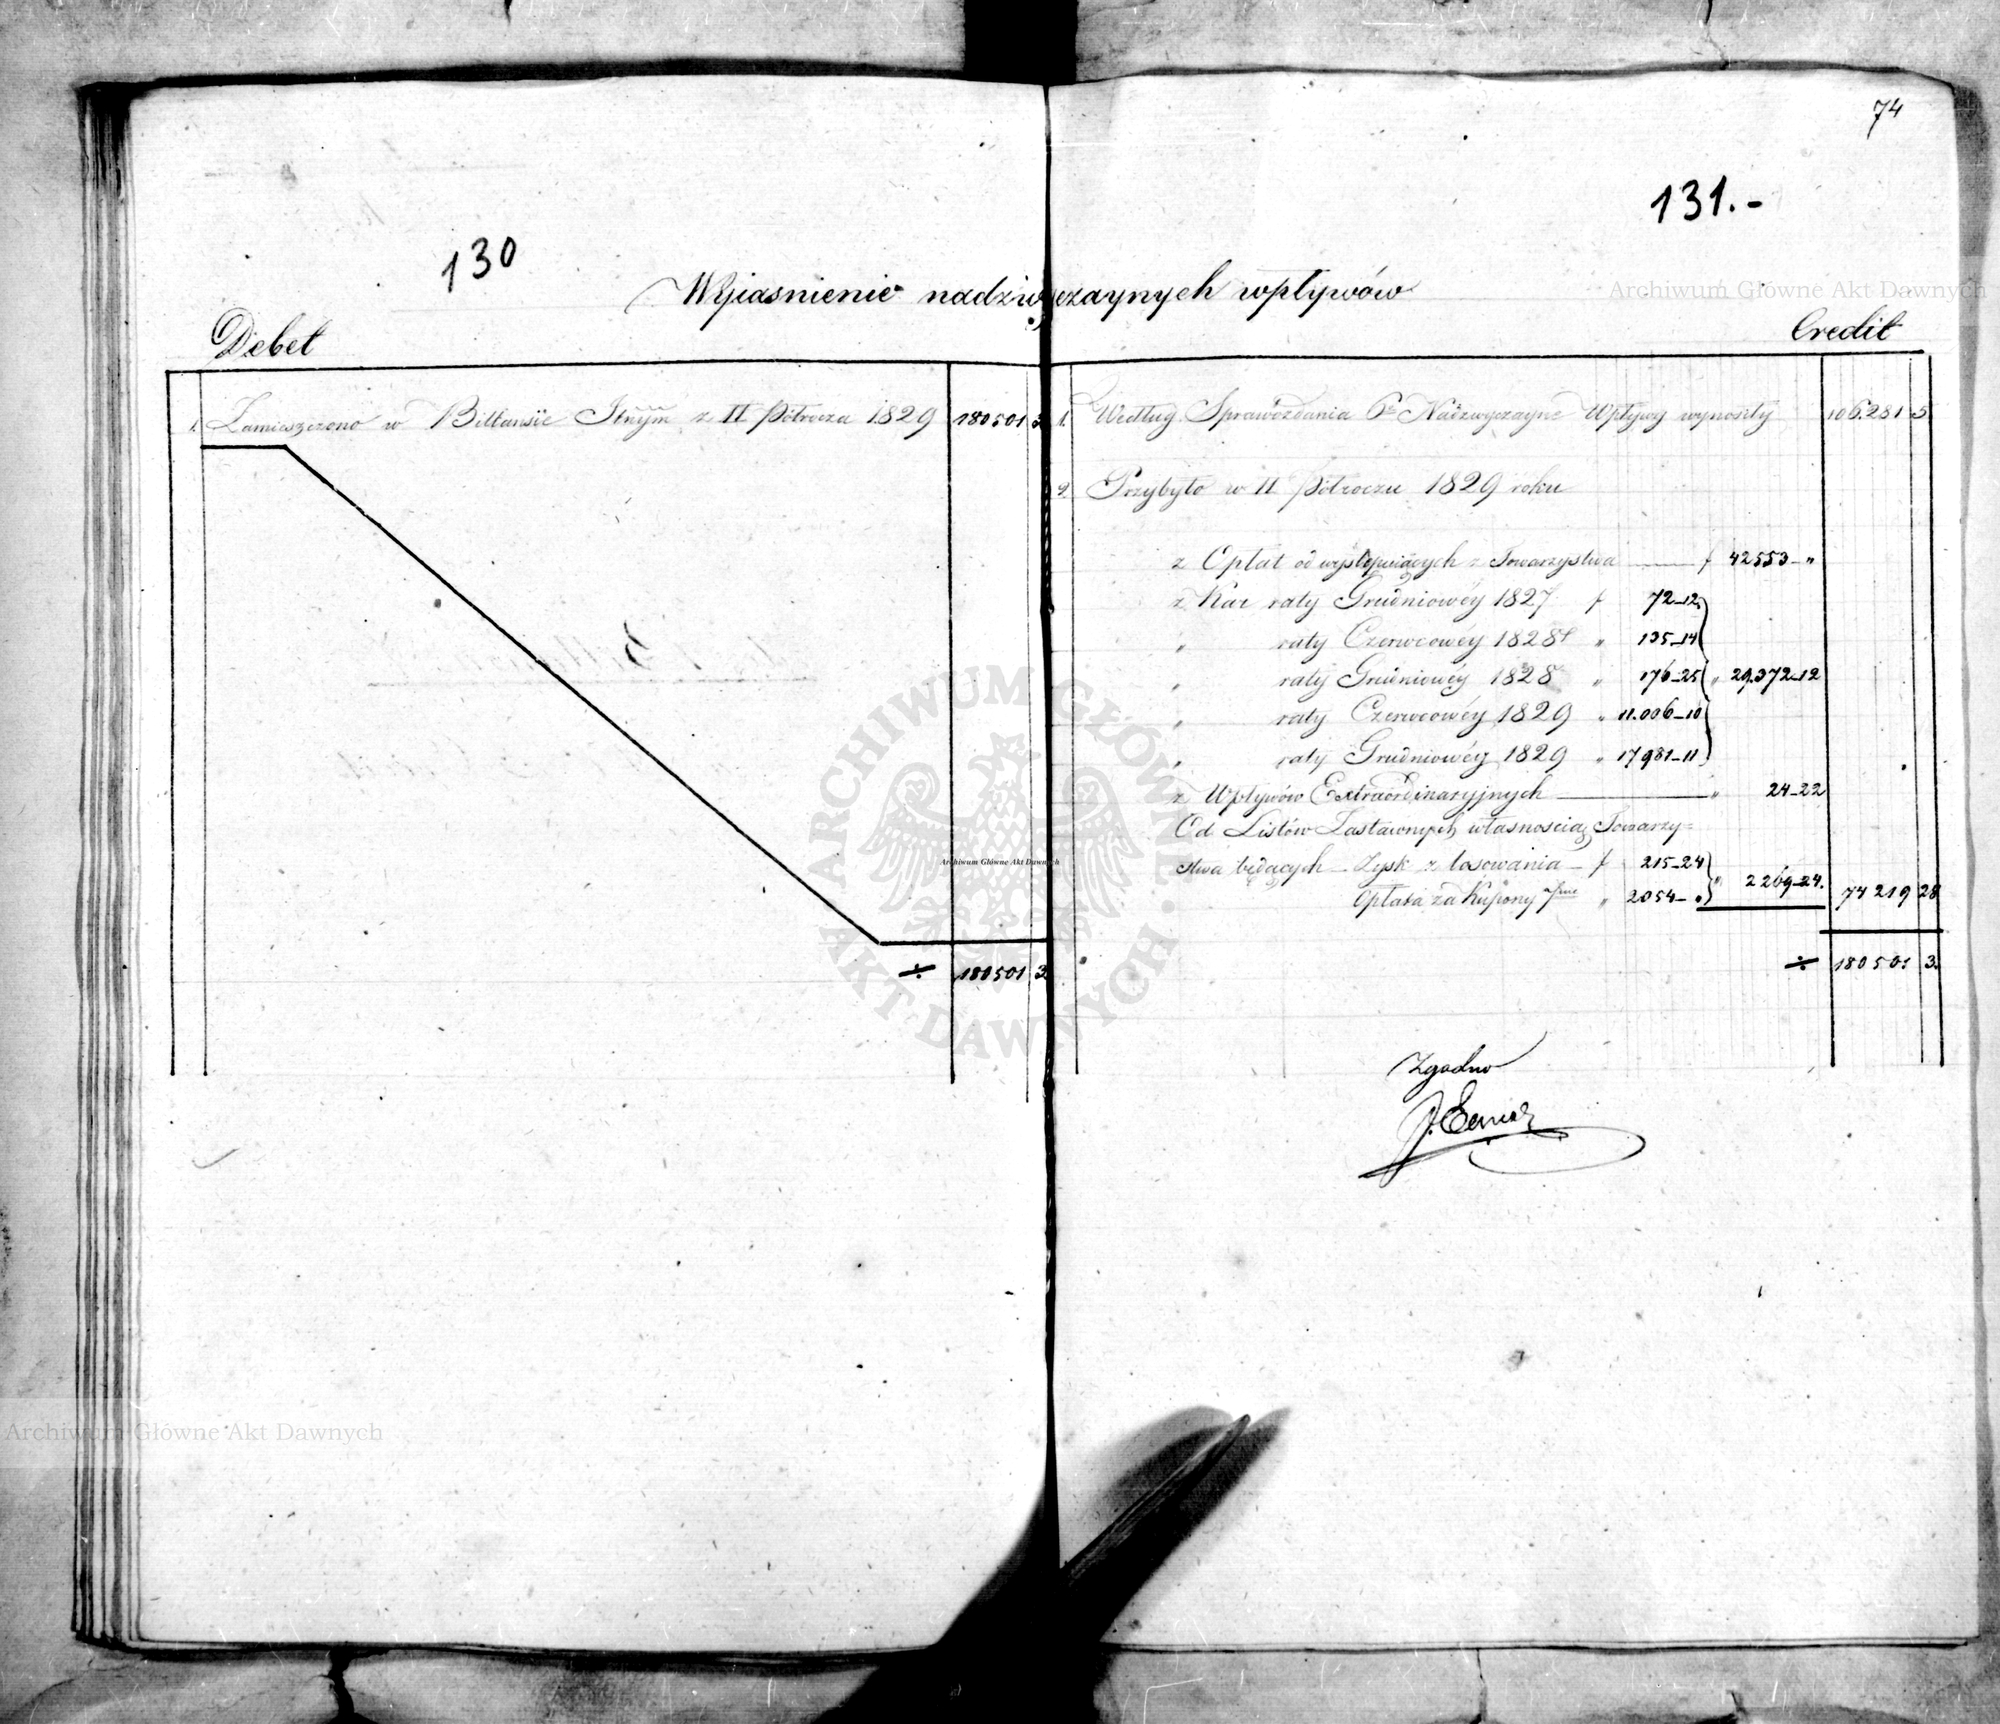 74
131.-
130
Wyiasnienie nadzwyczaynych wpływów
Debet
Credit
1. Zamieszczono w Billansie z II Półrocza 1829 180501 3
÷ 180501 3
1. Według Sprawozdania Nadzwyczayne Wpływy wynosiły 106.281 5
2. Przybyło w II Półroczu 1829 roku
z Opłat od występuiących z Towarzystwa f 42553 - "
z Kar raty Grudniowéy 1827 f 72-12
" raty Czerwcowéy 1828 " 135-14
" raty Grudniowéy 1828 " 176-25 " 29.372-12
" raty Czerwcowéy 1829 " 11.006-10
" raty Grudniowéy 1829 " 17981-11
z Wpływów Extraordinaryjnych " 24-22
Od Listów Zastawnych własnością Towarzy=
stwa będących - Zysk z losowania - f 215-24
Opłata za Kupony " 2054 - " " 2269-24. 74219 28
÷ 180501 3.
Zgodno
Archiwum Główne Akt Dawnych
Archiwum Główne Akt Dawnych
Archiwum Główne Akt Dawnych
ARCHIWUM GŁÓWNE · AKT DAWNYCH ·